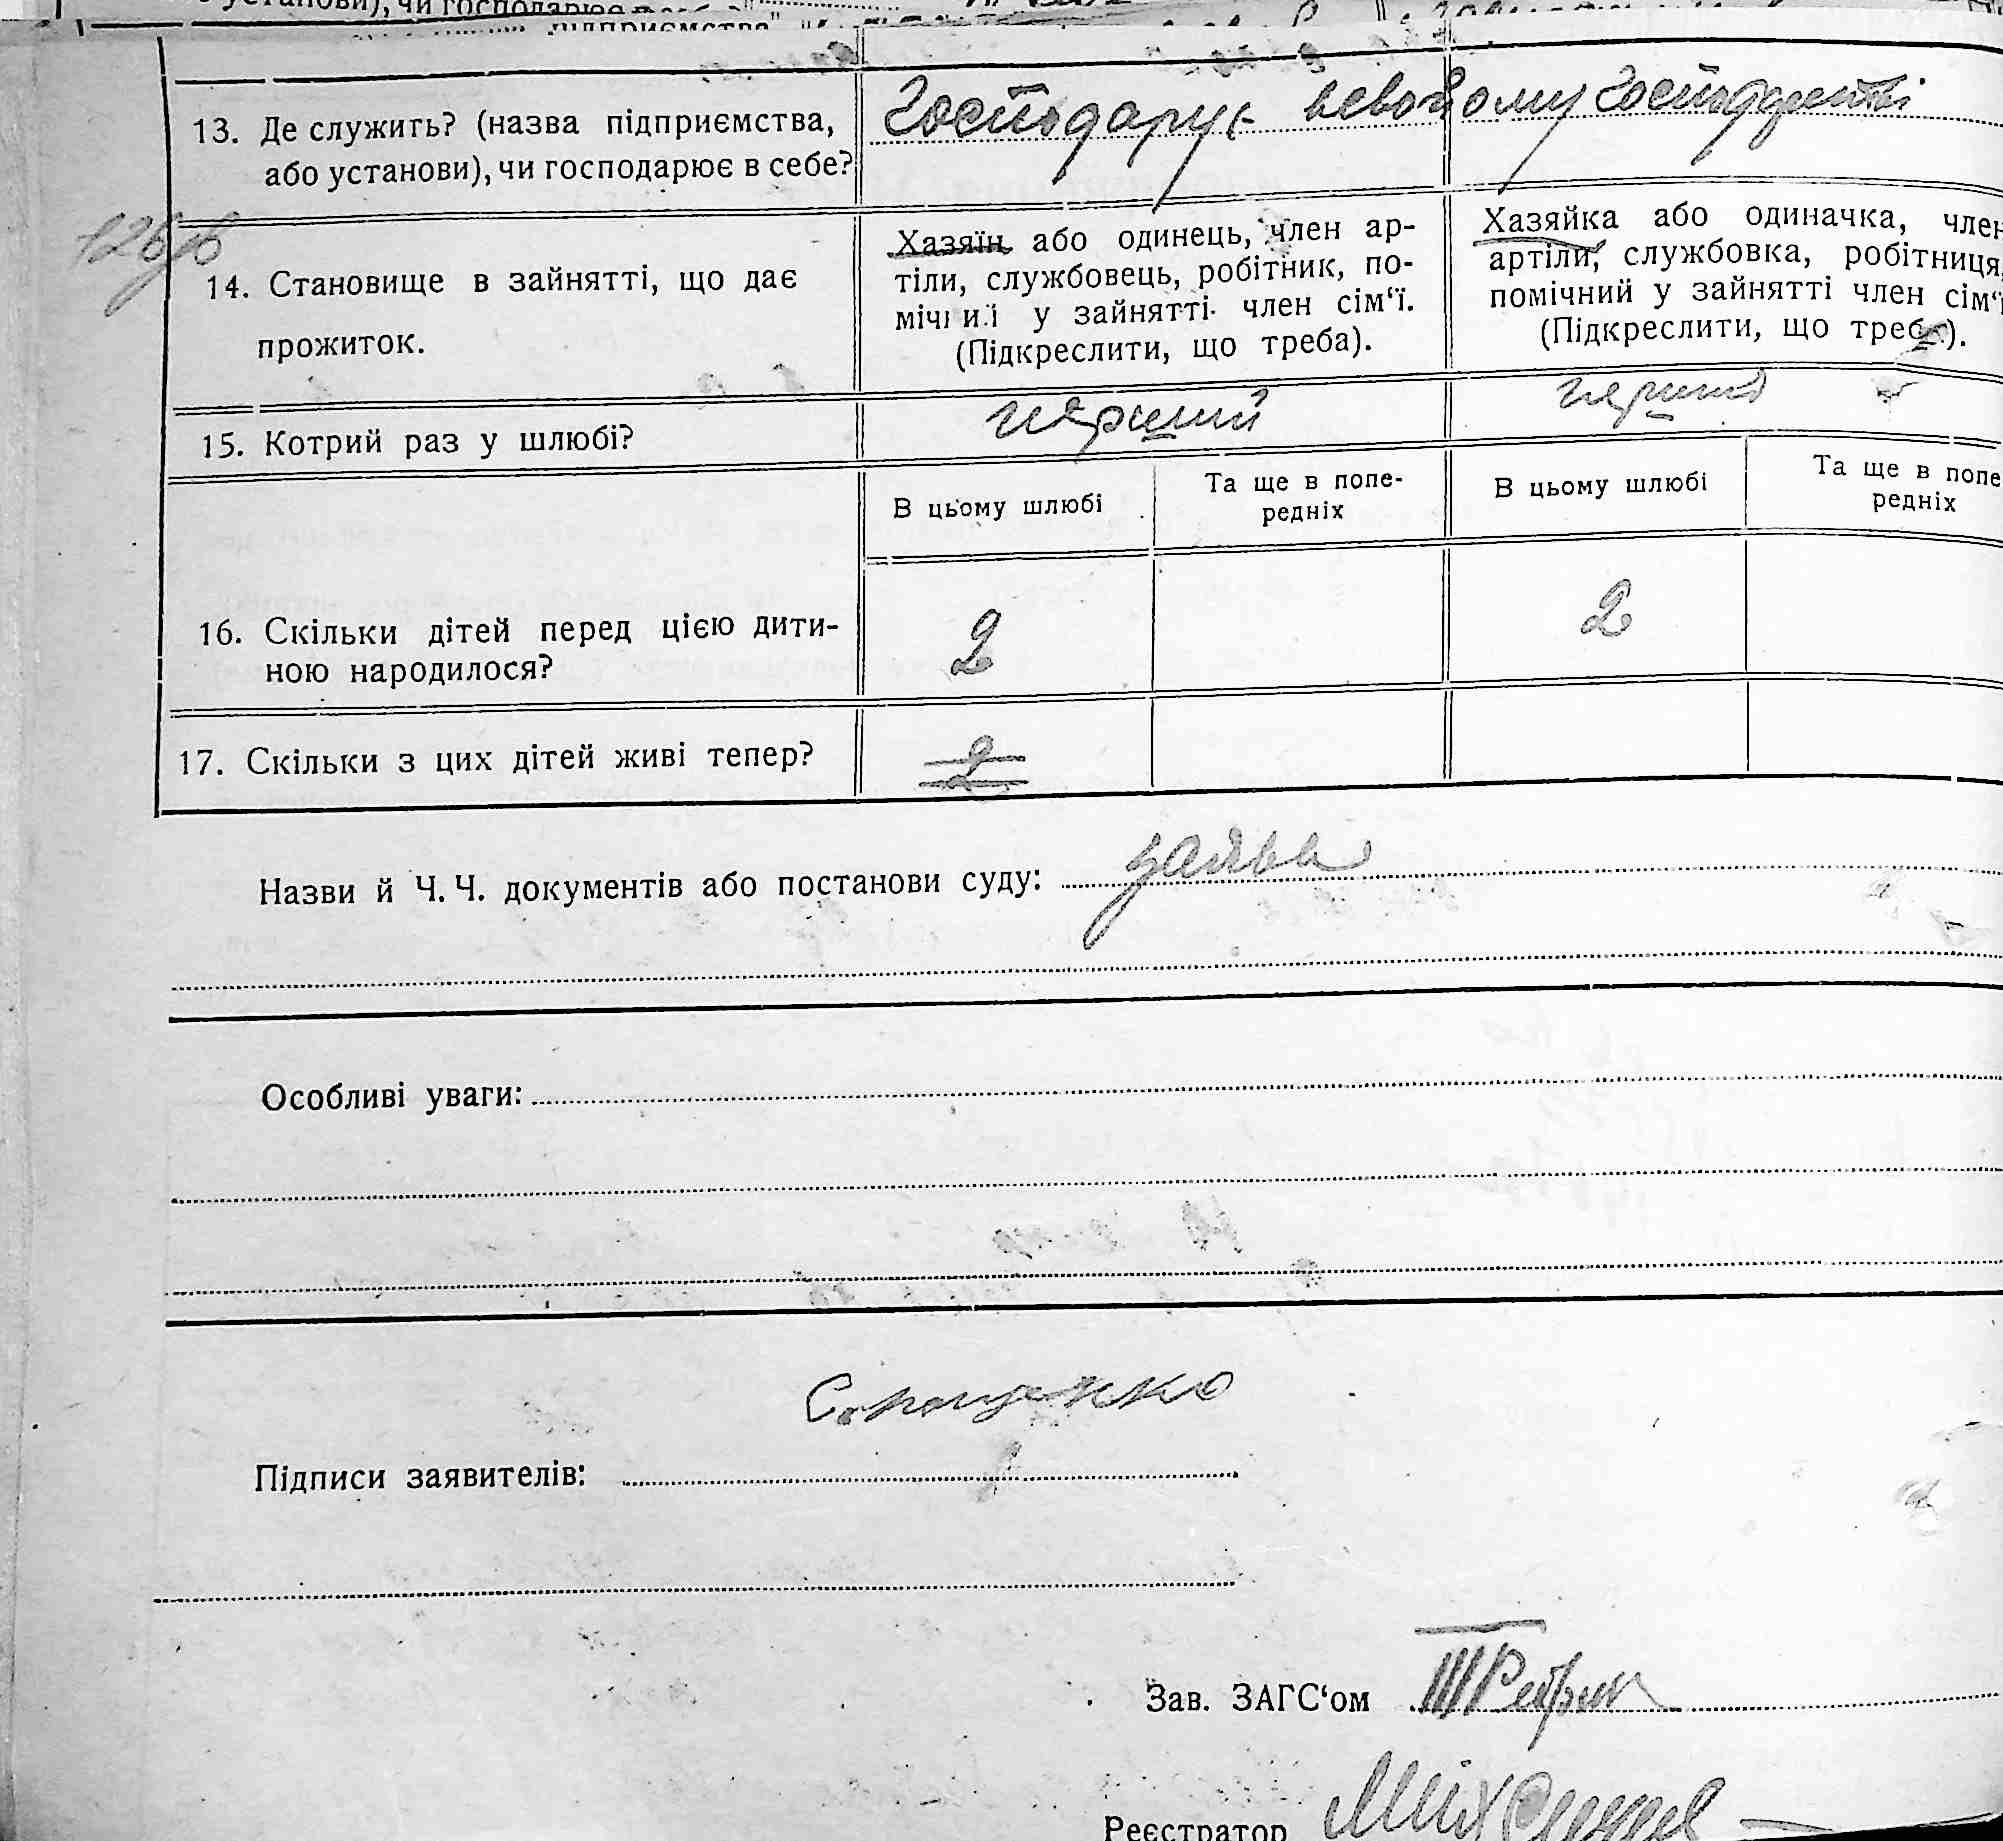 13. Де служить? (назва підприємства,
або установи), чи господарює в себе?
Господарує в своїому господарстві
126/б
14. Становище в зайнятті, що дає
прожиток.
Хазяїн або одинець, член ар-
тіли, службовець, робітник, по-
мічний у зайнятті член сім‘ї.
(Підкреслити, що треба).
Хазяйка або одиначка, член
артіли, службовка, робітниця,
помічний у зайнятті член сім‘ї
(Підкреслити, що треба).
15. Котрий раз у шлюбі?
перший
перший
В цьому шлюбі
Та ще в попе-
редніх
В цьому шлюбі
Та ще в попе
редніх
16. Скільки дітей перед цією дити-
ною народилося?
2
2
17. Скільки з цих дітей живі тепер?
2
Назви й Ч. Ч. документів або постанови суду: заява
Особливі уваги:
Підписи заявителів:
Зав. ЗАГС‘ом
Реєстратор